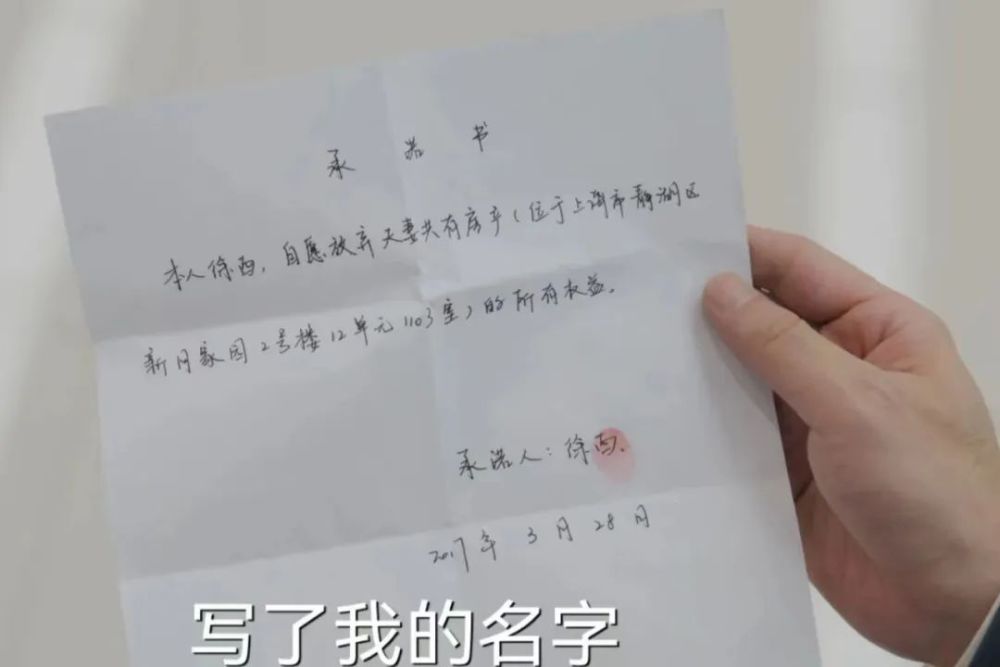 承 诺 书
本人徐西，自愿放弃夫妻共有房产（位于上海市静湖区
新月家园2号楼12单元1103室）的所有权益。
承诺人：徐西
2017年 3月 28日
写了我的名字